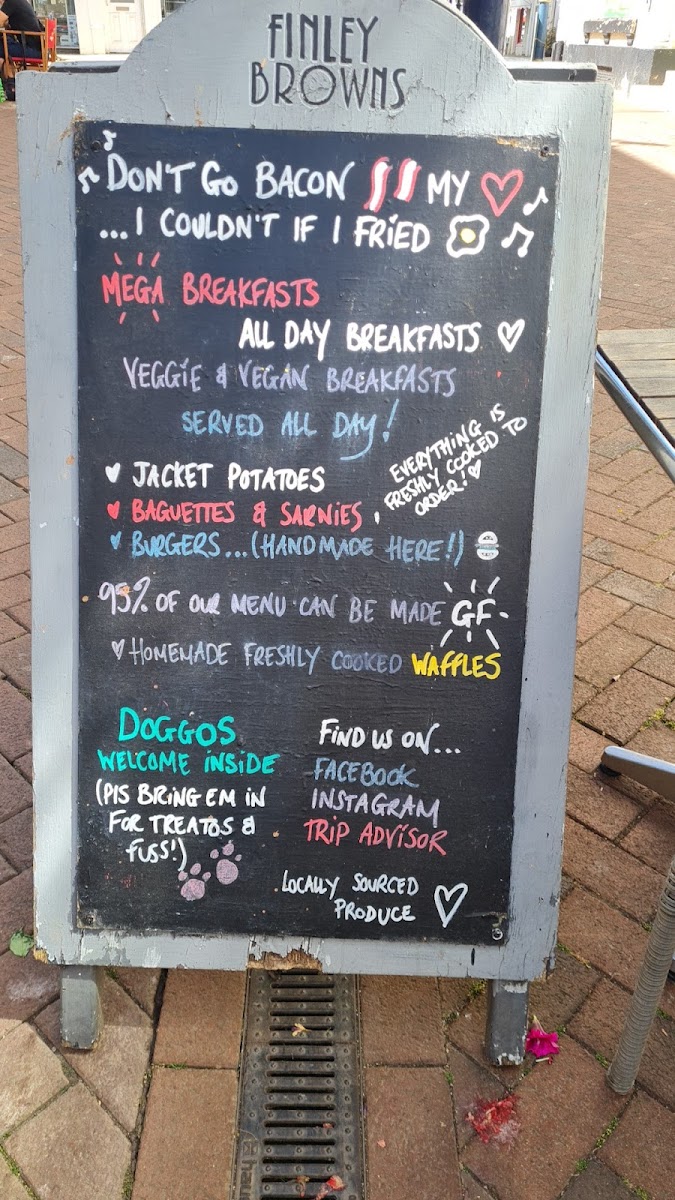 FINLEY
BROWNS
DON'T GO BACON MY
...I COULDN'T IF I FRIED
MEGA BREAKFASTS
ALL DAY BREAKFASTS
VEGGIE & VEGAN BREAKFASTS
SERVED ALL DAY!
EVERYTHING IS
FRESHLY COOKED TO
ORDER!
JACKET POTATOES
BAGUETTES & SARNIES,
BURGERS...(HANDMADE HERE!)
95% OF OUR MENU CAN BE MADE GF
HOMEMADE FRESHLY COOKED WAFFLES
DOGGOS
WELCOME INSIDE
(PlS BRING EM IN
FOR TREATOS &
FUSS!)
FIND US ON...
FACEBOOK
INSTAGRAM
TRIP ADVISOR
LOCALLY SOURCED
PRODUCE